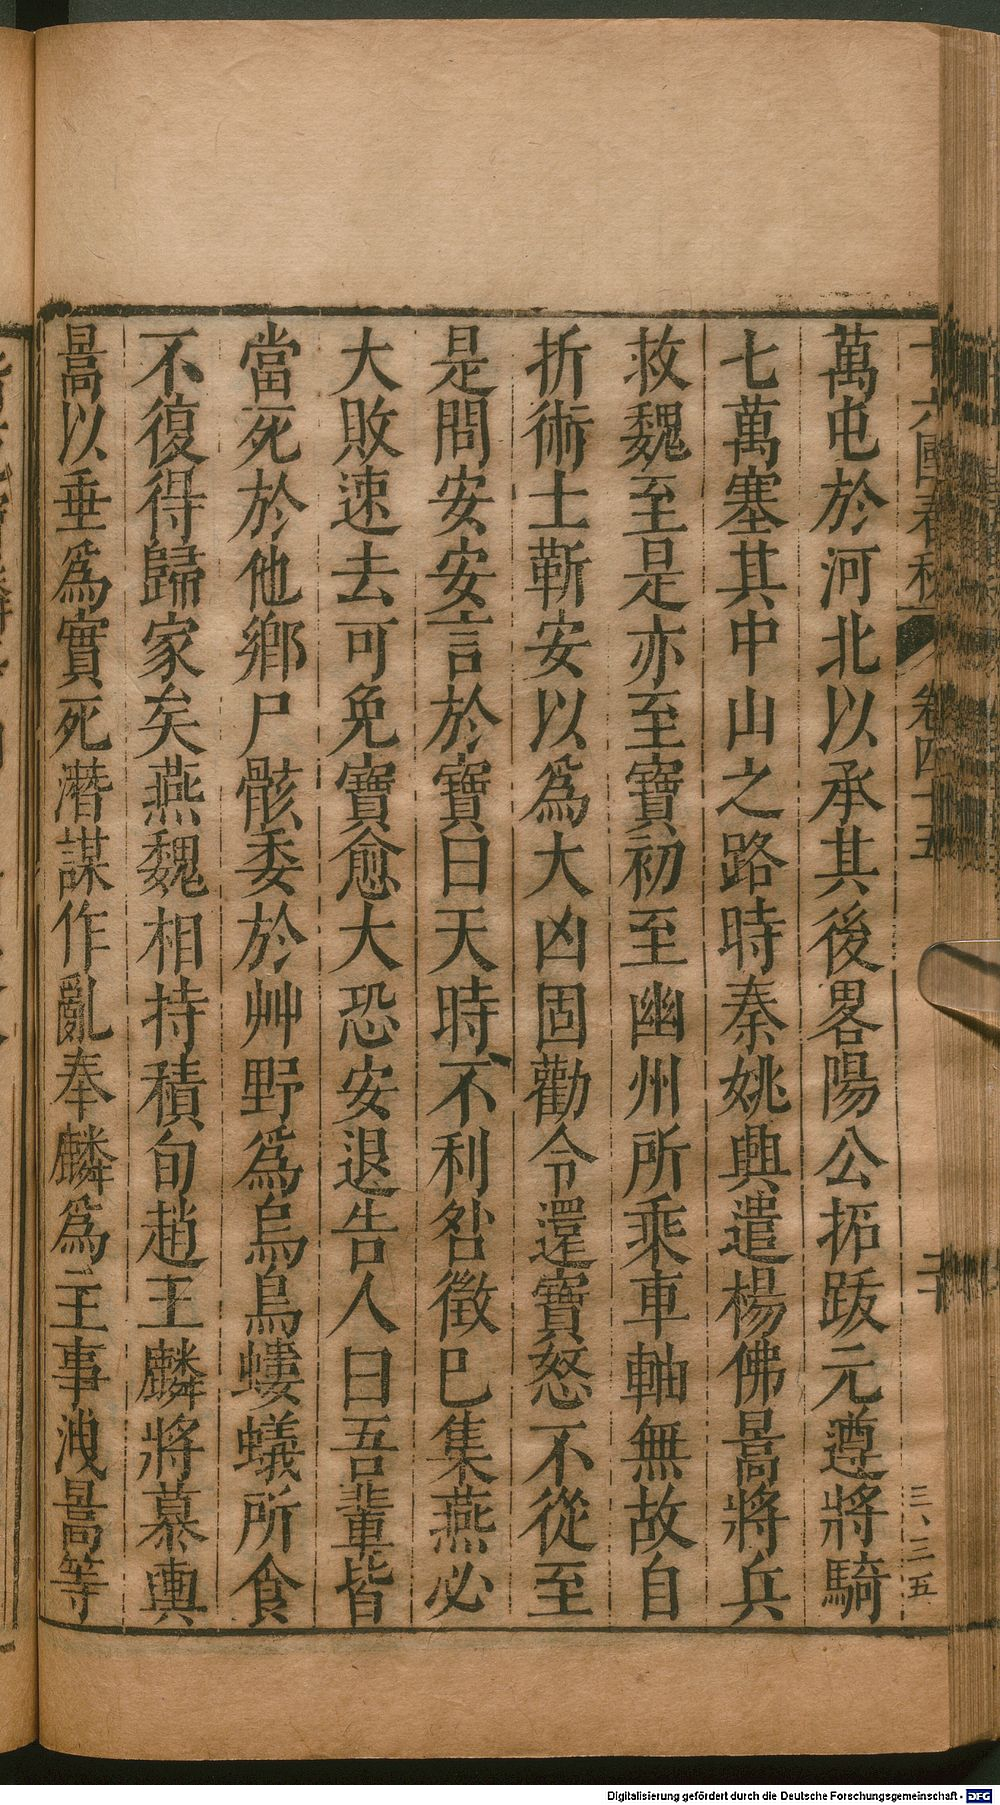 十六國春秋 卷四十五 二十 三、三五
萬屯於河北以承其後畧陽公拓䟦元遵將騎
七萬塞其中山之路時秦姚興遣楊佛嵩將兵
救魏至是亦至寶初至幽州所乘車軸無故自
折術士靳安以爲大凶固勸令還寶怒不從至
是問安安言於寶曰天時不利咎徵已集燕必
大敗速去可免寶愈大恐安退告人曰吾輩皆
當死於他鄉尸骸委於艸野爲烏鳥螻蟻所食
不復得歸家矣燕魏相持積旬趙王麟將慕輿
暠以垂爲實死潛謀作亂奉麟爲主事洩暠等
Digitalisierung gefördert durch die Deutsche Forschungsgemeinschaft - DFG